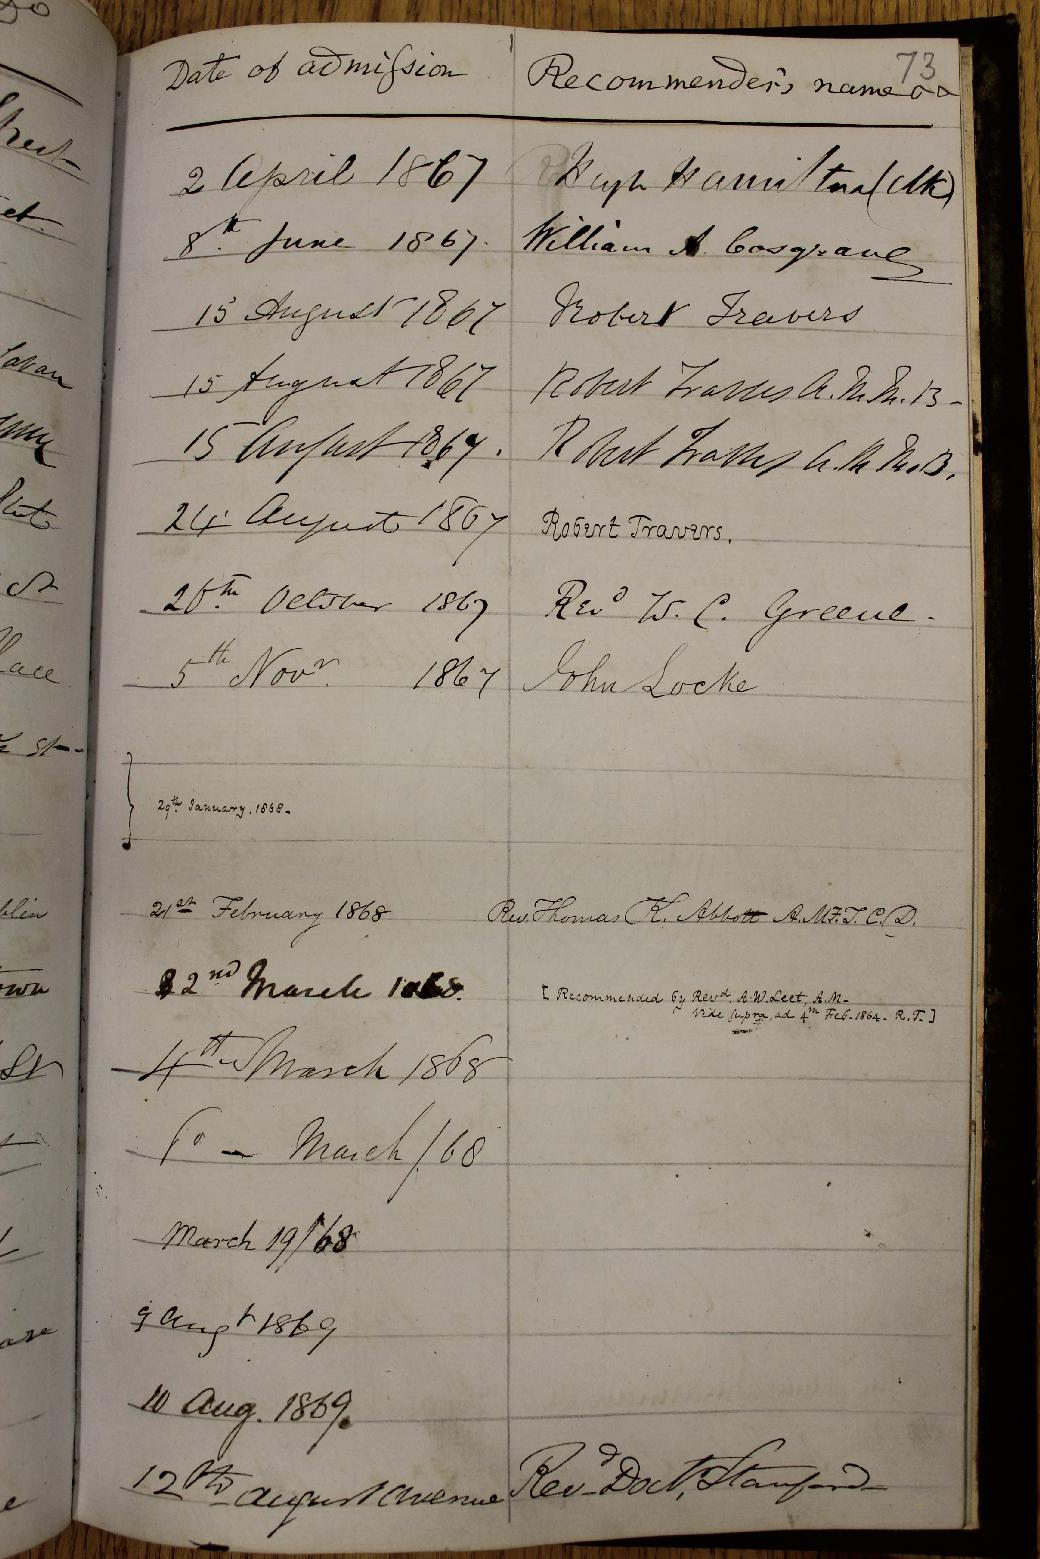 73
Date of admission Recommender's name
2 April 1867 Hugh Hamilton (Clk)
8th June 1867. William A Cosgrave
15 August 1867 Robert Travers
15 August 1867 Robert Travers A.M. M.B-
15 August 1867. Robert Travers A.M. M.B.
24 August 1867 Robert Travers.
26th October 1867 Revd W. C. Greene.
5th Novr. 1867 John Locke
29th January, 1868.
21st February 1868 Rev. Thomas K. Abbott A.M F.T.C.D.
2nd March 1868. [Recommended by Revd. A.W. Leet, A.M-
Vide supra, ad 4th Feb. 1864- R.T.]
4th March 1868
March /68
March 19/68
9 Augt 1869
10 Aug. 1869.
12th August avenue Revd Doct. Stanford